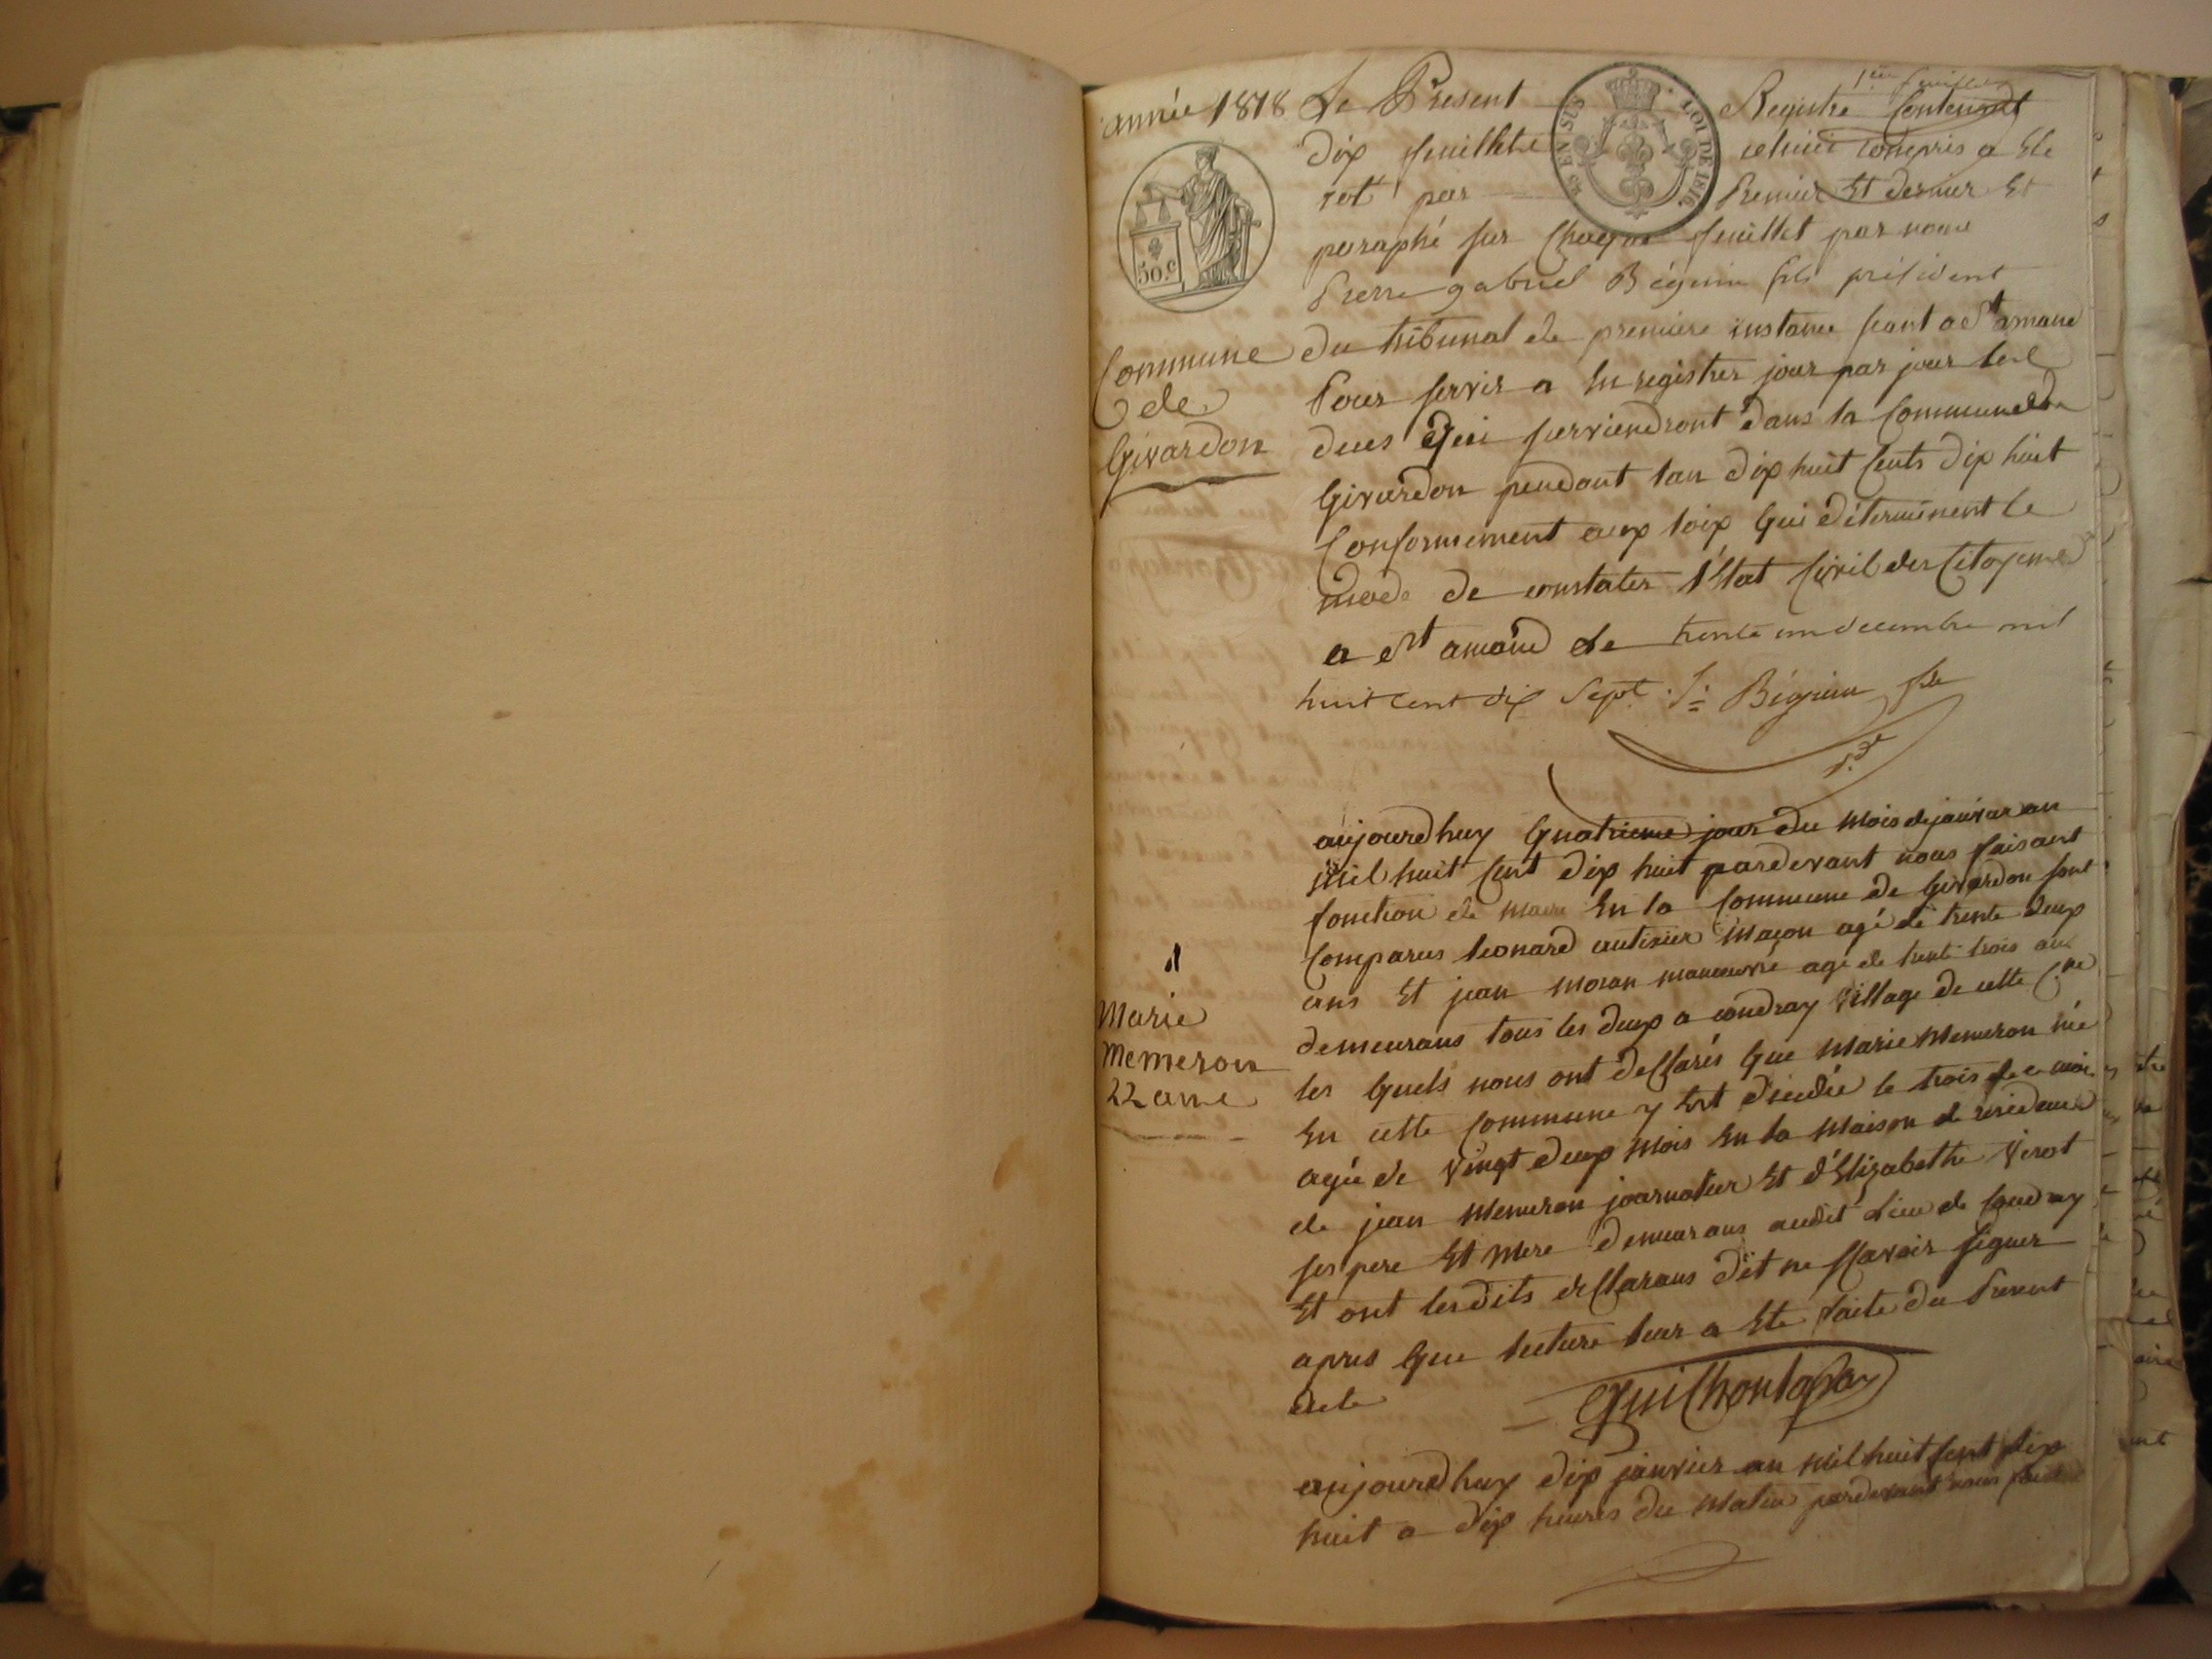 année 1818
50.c
Commune
de
Givardon
1er feuillet
Le Present Registre Contenant
EN SUS LOI DE 1816
dix feuillets celuici compris a Ete
cot par Premier Et dernier Et
paraphé sur Chaque feuillet par nous
Pierre gabriel Béguin fils président
du tribunal de premiere instance seant a St amand
Pour servir a Enregistrer jour par jour les
deces Qui surviendront dans la Commune de
Givardon pendant lan dix huit Cents dix huit
Conformement aux loix Qui determinent le
mode de constater l'Etat Civil des Citoyens
a St amand le trente un decembre mil
huit cent dix Sept. Béguin fils
aujourdhuy Quatrieme jour du Mois de janvier an
Mil huit Cent dix huit pardevant nous faisant
fonction de Maire En la Commune de Givardon sont
Comparus leonard autixier Maçon agé de trente deux
ans Et jean Moran manoeuvre agé de trente trois ans
demeurans tous les deux a coudray Village de cette Cne
les Quels nous ont desclarés Que Marie Memeron née
En cette Commune y Est décédée le trois de ce mois
agée de Vingt deux Mois En la Maison de residence
de jean Memeron journalier Et d'Elizabethe Verot
ses pere Et Mere demeurans audit Lieu de Coudray
Et ont lesdits desclarans dit ne sçavoir signer
apres Que lecture leur a Ete faite du Present
acte
1
Marie
Memeron
22
aujourdhuy dix janvier an Mil huit Cent dix
huit a dix heures du Matin pardevant nous